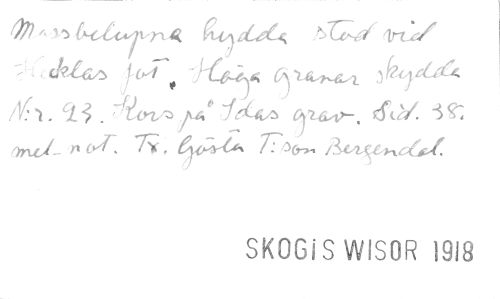 Mossbelupna hydda stod vid
Hecklas fot. Höga granar skydda
N:r. 93. Kors på Idas grav. Sid. 38.
mel-not. Tx. Gösta T:son Bergendal.
SKOGIS WISOR 1918